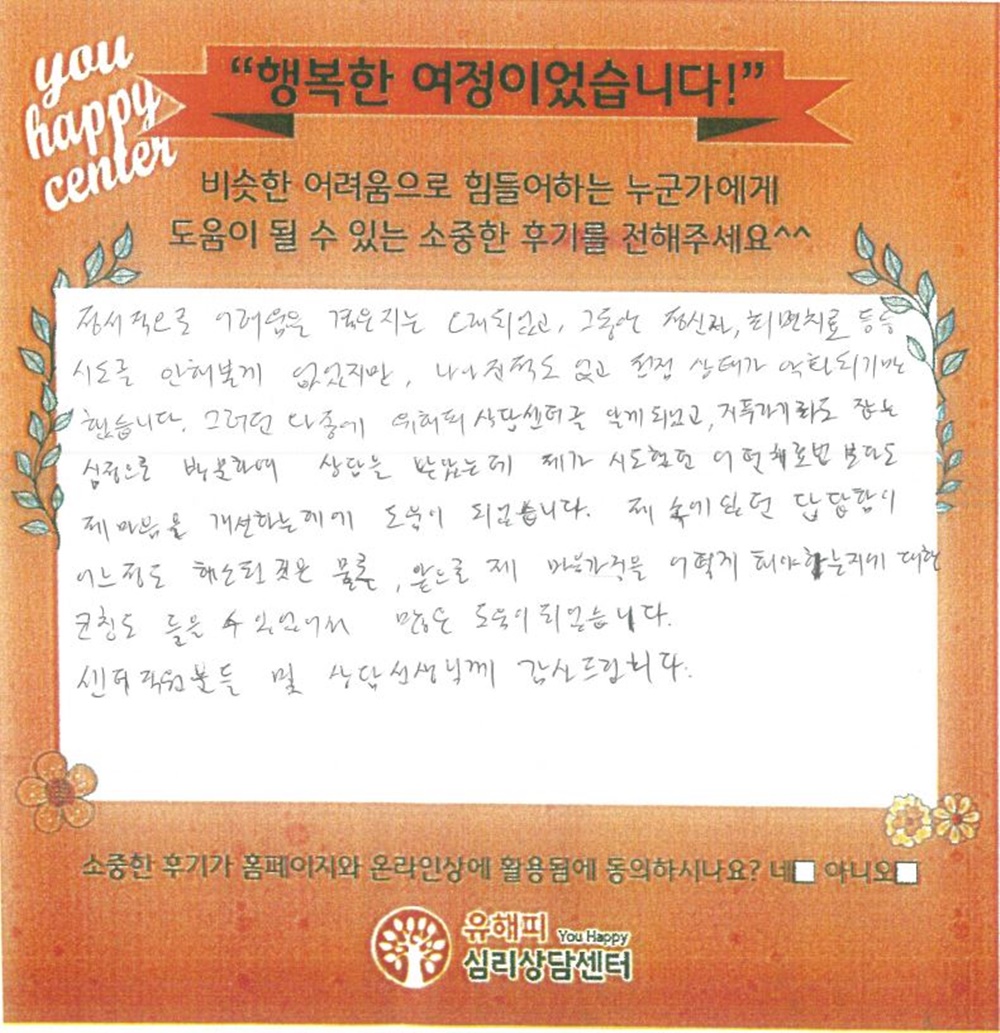 you
happy
center
“행복한 여정이었습니다!”
비슷한 어려움으로 힘들어하는 누군가에게
도움이 될 수 있는 소중한 후기를 전해주세요^^
정서적으로 어려움을 겪은지는 오래되었고, 그동안 정신과, 최면치료 등등
시도를 안해본게 없었지만, 나아진적도 없고 점점 상태가 악화되기만
했습니다. 그러던 와중에 유해피 상담센터를 알게 되었고, 지푸라기라도 잡는
심정으로 방문하여 상담을 받았는데 제가 시도했던 어떤 치료법 보다도
제 마음을 개선하는데에 도움이 되었습니다. 제 속에 있던 답답함이
어느정도 해소된 것은 물론, 앞으로 제 마음가짐을 어떻게 해야하는지에 대한
코칭도 들을 수 있었어서 많은 도움이 되었습니다.
센터 직원분들 및 상담선생님께 감사드립니다.
소중한 후기가 홈페이지와 온라인상에 활용됨에 동의하시나요? 네 아니오
유해피 You Happy
심리상담센터